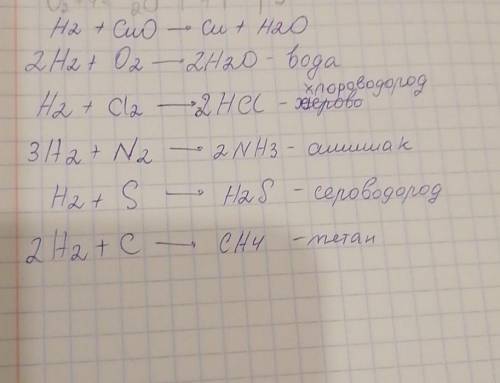 H2 + CuO → Cu + H2O
2H2 + O2 → 2H2O - вода
хлороводород
H2 + Cl2 → 2HCl -
3H2 + N2 → 2NH3 - аммиак
H2 + S → H2S - сероводород
2H2 + C → CH4 - метан